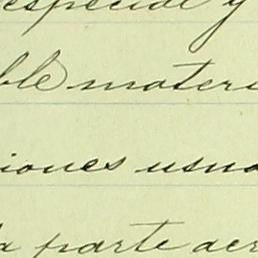 especial y
ble materi
iones usua
la parte aer